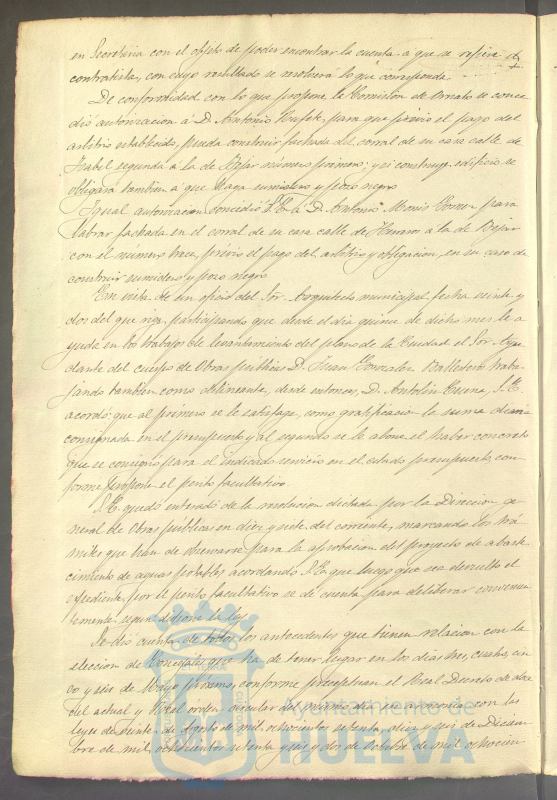 en Secretaria con el objeto de poder encontrar la cuenta a que se refiere el
contratista, con cuyo resultado se resolverá lo que corresponda.
De conformidad con lo que propone la Comision de Ornato se conce
dió autorizacion á D. Antonio para que previo el pago del
arbitrio establecido, pueda construir fachada del corral de su casa calle de
Isabel segunda á la de Bejar número primero; y si construye edificio se
obligará tambien á que haga sumidero y pozo negro
Igual autorizacion concedió S.E. á D. Antonio Gomez para
labrar fachada en el corral de su casa calle de á la de Bejar
con el numero trece, prévio el pago del arbitrio y obligacion, en su caso de
construir sumidero y pozo negro
En vista de un oficio del Sor. Arquitecto municipal fecha veinte y
dos del que rige, participando que desde el dia quince de dicho mes le a
yuda en los trabajos de levantamiento del plano de la Ciudad el Sor. Ayu
dante del cuerpo de Obras publicas D. Juan Gonzalez Ballesteros traba
jando tambien como delineante, desde entonces, D. Antolin S.E.
acordó: que al primero se le satisfaga, como gratificacion la suma diaria
consignada en el presupuesto y al segundo se le abone el haber concreto
que se consignó para el indicado servicio en el citado presupuesto, con
forme propone el perito facultativo.
S.E. quedó enterado de la resolucion dictada por la Direccion ge
neral de Obras públicas en diez y siete del corriente, marcando los trá
mites que han de observarse para la aprobacion del proyecto de abaste
cimiento de aguas potables acordando S.E. que luego que sea devuelto el
expediente por el perito facultativo se dé cuenta para deliberar convenien
temente segun dispone la ley.
Se dió cuenta de todos los antecedentes que tienen relacion con la
eleccion de Concejales que ha de tener lugar en los dias tres, cuatro, cin
co y seis de Mayo próximo, conforme preceptuan el Real Decreto de doce
del actual y Real orden circular del mismo dia en armonia con las
leyes de veinte de Agosto de mil ochocientos setenta, diez y seis de Diciem
bre de mil ochocientos setenta y seis y dos de Octubre de mil ochocien
Ayuntamiento de
HUELVA